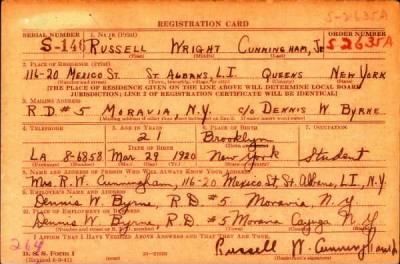 S-2635A
REGISTRATION CARD
SERIAL NUMBER 1. NAME (Print) ORDER NUMBER
S-146 RUSSELL WRIGHT CUNNINGHAM, Jr. S2635A
(First) (Middle) (Last)
2. PLACE OF RESIDENCE (Print)
116-20 MEXICO ST. ST. ALBANS, L.I. QUEENS NEW YORK
[THE PLACE OF RESIDENCE GIVEN ON THE LINE ABOVE WILL DETERMINE LOCAL BOARD
JURISDICTION; LINE 2 OF REGISTRATION CERTIFICATE WILL BE IDENTICAL]
3. MAILING ADDRESS
R.D #5 MORAVIA N.Y. c/o DENNIS W BYRNE
4. TELEPHONE 5. AGE IN YEARS 6. PLACE OF BIRTH 7. OCCUPATION
21 Brooklyn
DATE OF BIRTH
LA 8-6858 Mar 29 1920 New York Student
8. NAME AND ADDRESS OF PERSON WHO WILL ALWAYS KNOW YOUR ADDRESS
Mrs. R.W. Cunningham, 116-20 Mexico St, St. Albans, L.I., N.Y.
9. EMPLOYER'S NAME AND ADDRESS
Dennis W. Byrne, R.D. #5 Moravia, N.Y.
10. PLACE OF EMPLOYMENT OR BUSINESS
Dennis W. Byrne, R.D. #5 Moravia Cayuga N.Y.
I AFFIRM THAT I HAVE VERIFIED ABOVE ANSWERS AND THAT THEY ARE TRUE.
264 Russell W. Cunningham Jr
D. S. S. FORM 1